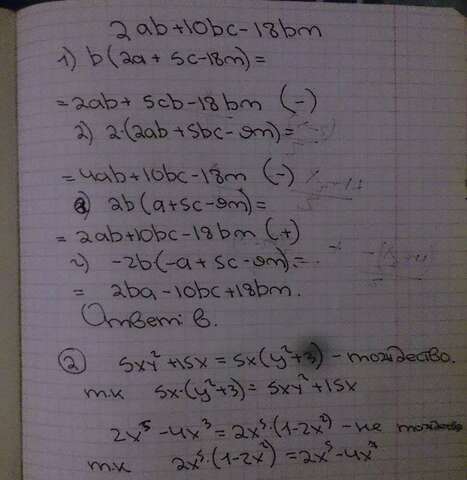 2ab+10bc-18bm
1) b(2a+5c-18m)=
=2ab+5cb-18bm (-)
2) 2·(2ab+5bc-9m)=
=4ab+10bc-18m (-)
3) 2b(a+5c-9m)=
=2ab+10bc-18bm (+)
4) -2b(-a+5c-9m)=
= 2ba-10bc+18bm.
Ответ: в.
② 5xy²+15x=5x(y²+3)-тождество.
т.к 5x·(y²+3)=5xy²+15x
2x⁵-4x³=2x⁵·(1-2x²)-не тождество
т.к 2x⁵·(1-2x²)=2x⁵-4x⁷